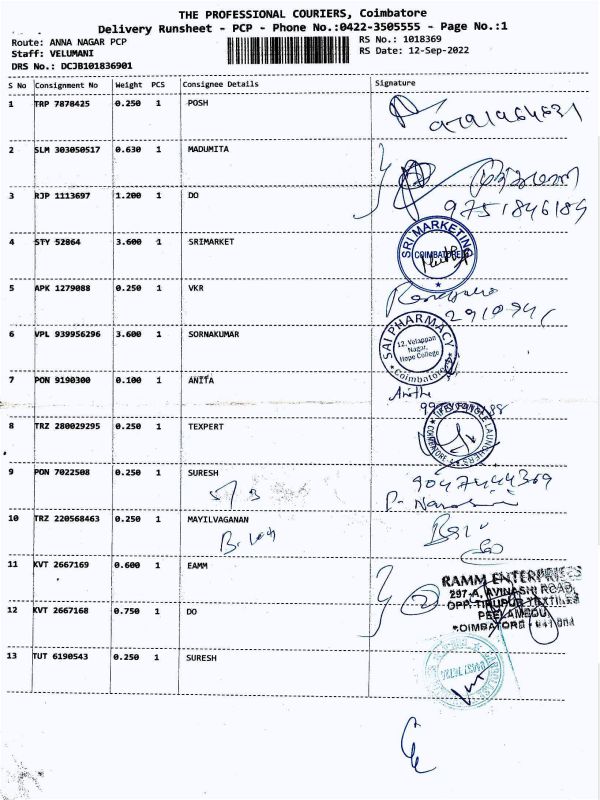 THE PROFESSIONAL COURIERS, Coimbatore
Delivery Runsheet - PCP - Phone No.:0422-3505555 - Page No.:1
Route: ANNA NAGAR PCP
RS No.: 1018369
Staff: VELUMANI
RS Date: 12-Sep-2022
DRS No.: DCJB101836901
S No Consignment No Weight PCS Consignee Details Signature
1 TRP 7878425 0.250 1 POSH
2 SLM 303050517 0.630 1 MADUMITA
3 RJP 1113697 1.200 1 DO
9751846184
4 STY 52864 3.600 1 SRIMARKET
SRI MARKETING
COIMBATORE
5 APK 1279088 0.250 1 VKR
6 VPL 939956296 3.600 1 SORNAKUMAR
SAI PHARMACY
12, Velappan
Nagar,
Hope College
Coimbatore
7 PON 9190300 0.100 1 ANITA
Anitha
8 TRZ 280029295 0.250 1 TEXPERT
9 PON 7022508 0.250 1 SURESH
9047444369
10 TRZ 220568463 0.250 1 MAYILVAGANAN
11 KVT 2667169 0.600 1 EAMM
RAMM ENTERPRISES
297-A, AVINASHI ROAD,
OPP. TIRUPUR TEXTILES
PEELAMEDU
COIMBATORE - 641 004
12 KVT 2667168 0.750 1 DO
13 TUT 6190543 0.250 1 SURESH